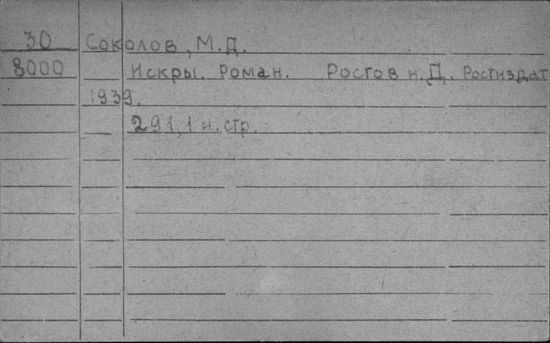 30 Соколов, М.Д.
8000 Искры. Роман. Ростов н.Д. Ростиздат
1939.
291,1 н.стр.